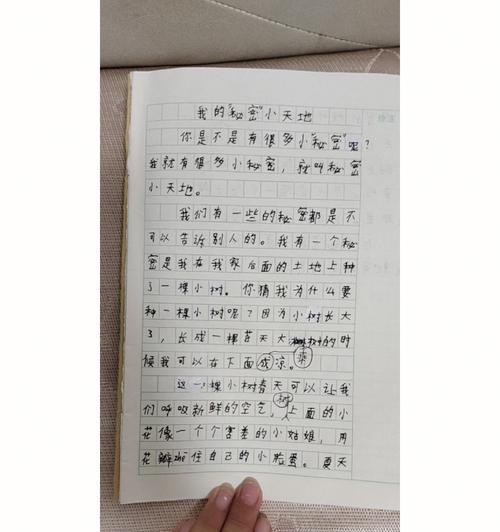 我的"秘密"小天地
你是不是有很多小"秘密"呢?
我就有很多小秘密,就叫秘密
小天地。
我们有一些的秘密都是不
可以告诉别人的。我有一个秘
密是我在我家后面的土地上种
了一棵小树。你猜我为什么要
种一棵小树呢?因为小树长大
了,长成一棵苍天大树的时
候我可以在下面成凉。
乘
这一棵小树春天可以让我
们呼吸新鲜的空气,上面的小
树
花像一个个害羞的小姑娘,用
花瓣zhē住自己的小脸蛋。夏天